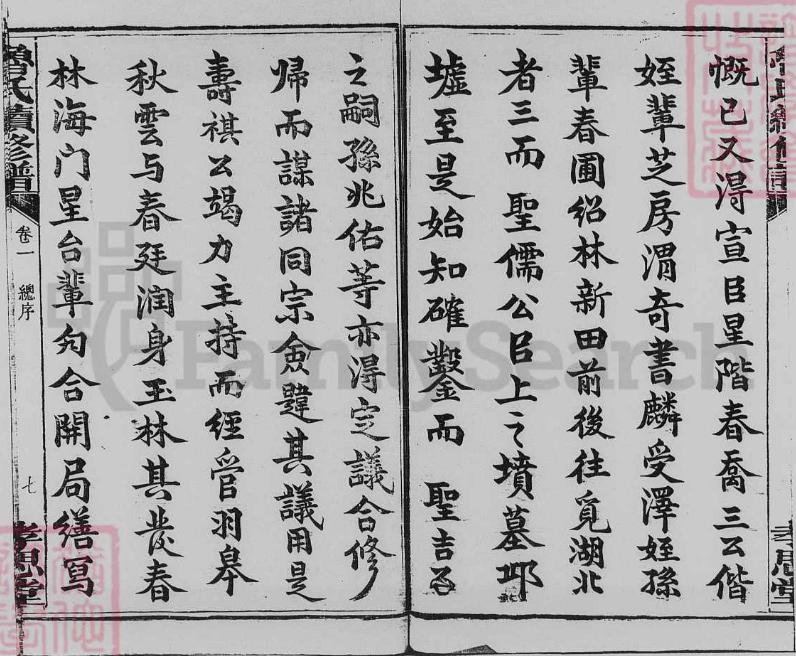 慨已又得宣臣星階春喬三公偕
姪輩芝房渭奇書麟受澤姪孫
輩春圃紹林新田前後往覓湖北
者三而聖儒公㠯上之墳墓邱
墟至是始知確鑿而聖吉公
之嗣孫兆佑等亦得定議合修
歸而謀諸同宗僉韙其議用是
壽祺公竭力主持而經管羽皋
秋雲与春廷润身玉林其發春
林海门星台輩匀合開局繕寫
魯氏續修譜
卷一 總序
七
孝思堂
孝思堂
FamilySearch